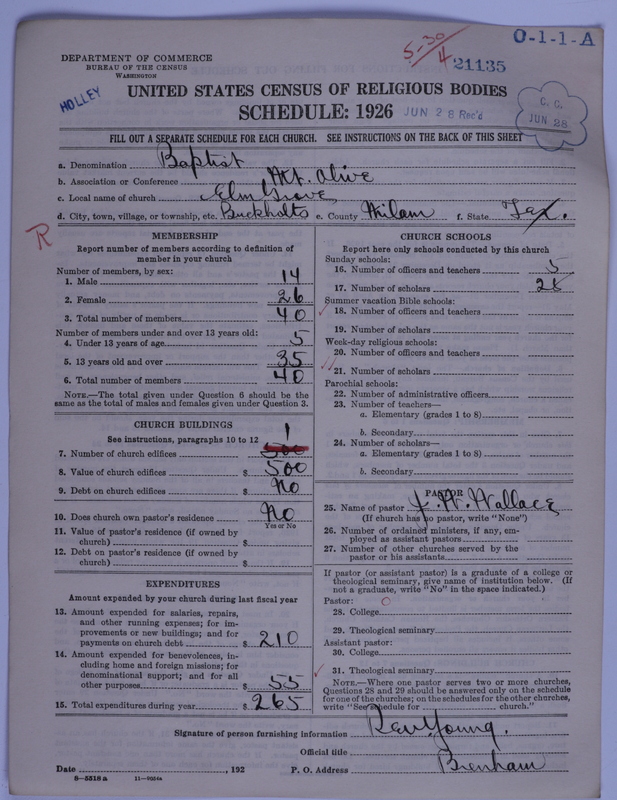 0-1-1-A
5-30/4
21135
DEPARTMENT OF COMMERCE
BUREAU OF THE CENSUS
WASHINGTON
HOLLEY
UNITED STATES CENSUS OF RELIGIOUS BODIES
SCHEDULE: 1926
JUN 28 Rec'd
C. C.
JUN 28
FILL OUT A SEPARATE SCHEDULE FOR EACH CHURCH. SEE INSTRUCTIONS ON THE BACK OF THIS SHEET
a. Denomination Baptist
b. Association or Conference Mt. Olive
c. Local name of church Elm Grove
d. City, town, village, or township, etc. Buckholts e. County Milam f. State Tex.
R
MEMBERSHIP
Report number of members according to definition of
member in your church
Number of members, by sex:
1. Male 14
2. Female 26
3. Total number of members 40
Number of members under and over 13 years old:
4. Under 13 years of age 5
5. 13 years old and over 35
6. Total number of members 40
NOTE.—The total given under Question 6 should be the
same as the total of males and females given under Question 3.
CHURCH BUILDINGS
See instructions, paragraphs 10 to 12
1
7. Number of church edifices 500
8. Value of church edifices $ 500
9. Debt on church edifices $ No
10. Does church own pastor's residence No
Yes or No
11. Value of pastor's residence (if owned by
church) $
12. Debt on pastor's residence (if owned by
church) $
EXPENDITURES
Amount expended by your church during last fiscal year
13. Amount expended for salaries, repairs,
and other running expenses; for im-
provements or new buildings; and for
payments on church debt $ 210
14. Amount expended for benevolences, in-
cluding home and foreign missions; for
denominational support; and for all
other purposes $ 55
15. Total expenditures during year $ 265
CHURCH SCHOOLS
Report here only schools conducted by this church
Sunday schools:
16. Number of officers and teachers 5
17. Number of scholars
Summer vacation Bible schools:
18. Number of officers and teachers
19. Number of scholars
Week-day religious schools:
20. Number of officers and teachers
21. Number of scholars
Parochial schools:
22. Number of administrative officers
23. Number of teachers—
a. Elementary (grades 1 to 8)
b. Secondary
24. Number of scholars—
a. Elementary (grades 1 to 8)
b. Secondary
PASTOR
25. Name of pastor J. W. Wallace
(If church has no pastor, write "None")
26. Number of ordained ministers, if any, em-
ployed as assistant pastors
27. Number of other churches served by the
pastor or his assistants
If pastor (or assistant pastor) is a graduate of a college or
theological seminary, give name of institution below. (If
not a graduate, write "No" in the space indicated.)
Pastor: O
28. College
29. Theological seminary
Assistant pastor:
30. College
31. Theological seminary
NOTE.—Where one pastor serves two or more churches,
Questions 28 and 29 should be answered only on the schedule
for one of the churches; on the schedules for the other churches,
write "See schedule for church."
Signature of person furnishing information Rev Young.
Official title
Date , 192 P. O. Address Brenham
8-5518a 11-9024a